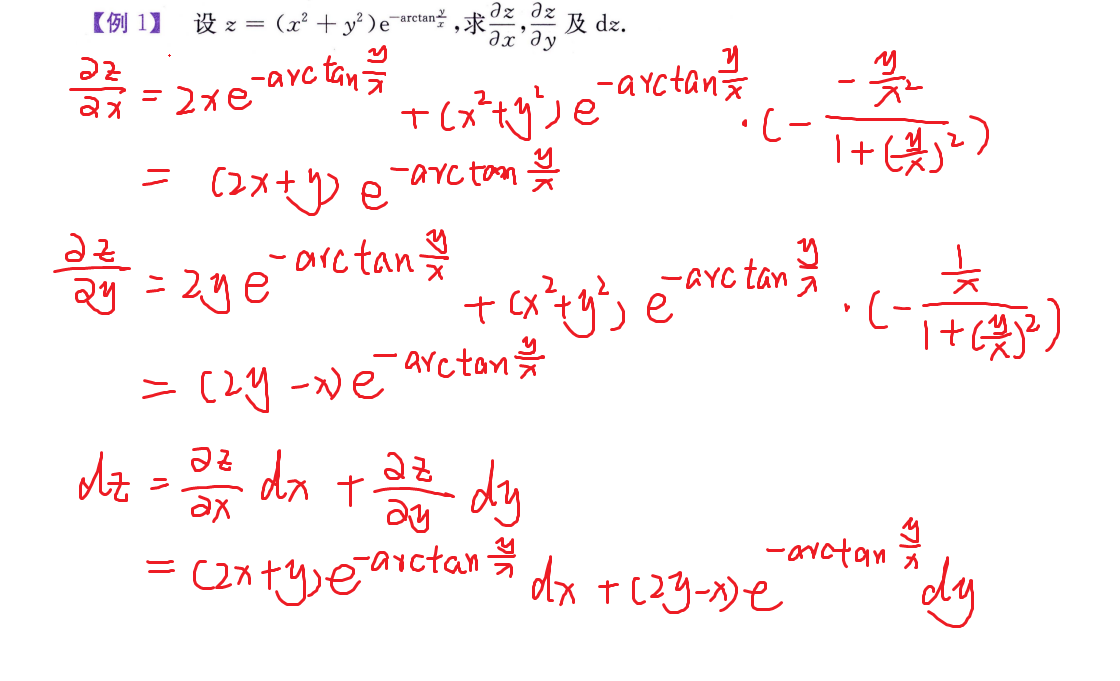 【例 1】 设 z = (x² + y²)e^{-arctan\frac{y}{x}}, 求\frac{∂z}{∂x}, \frac{∂z}{∂y} 及 dz.
\frac{∂z}{∂x} = 2xe^{-arctan\frac{y}{x}} + (x²+y²)e^{-arctan\frac{y}{x}} · (-\frac{-\frac{y}{x²}}{1+(\frac{y}{x})²})
= (2x+y) e^{-arctan\frac{y}{x}}
\frac{∂z}{∂y} = 2ye^{-arctan\frac{y}{x}} + (x²+y²) e^{-arctan\frac{y}{x}} · (-\frac{\frac{1}{x}}{1+(\frac{y}{x})²})
= (2y-x)e^{-arctan\frac{y}{x}}
dz = \frac{∂z}{∂x} dx + \frac{∂z}{∂y} dy
= (2x+y)e^{-arctan\frac{y}{x}} dx + (2y-x)e^{-arctan\frac{y}{x}} dy